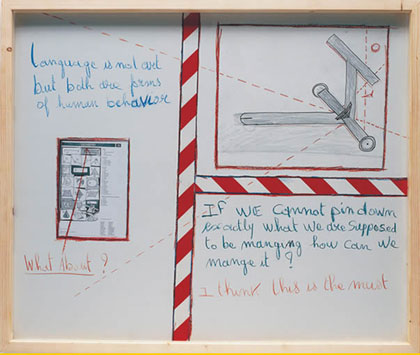 Language is not art
but both are forms
of human behavior
What About ?
IF WE Cannot pin down
exactly what we are supposed
to be manging how can we
mange it ?
I think this is the must